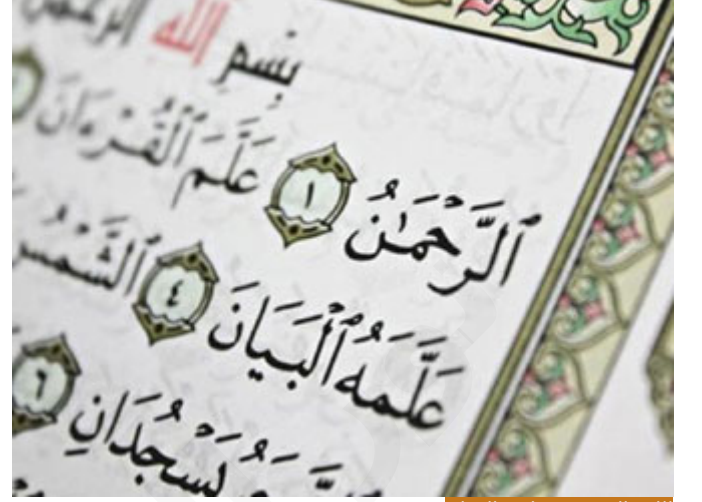 بِسْمِ اللَّهِ الرَّحْمَٰنِ
ٱلرَّحْمَٰنُ ١ عَلَّمَ ٱلْقُرْءَانَ
عَلَّمَهُ ٱلْبَيَانَ ٤ ٱلشَّمْسُ
يَسْجُدَانِ ٦